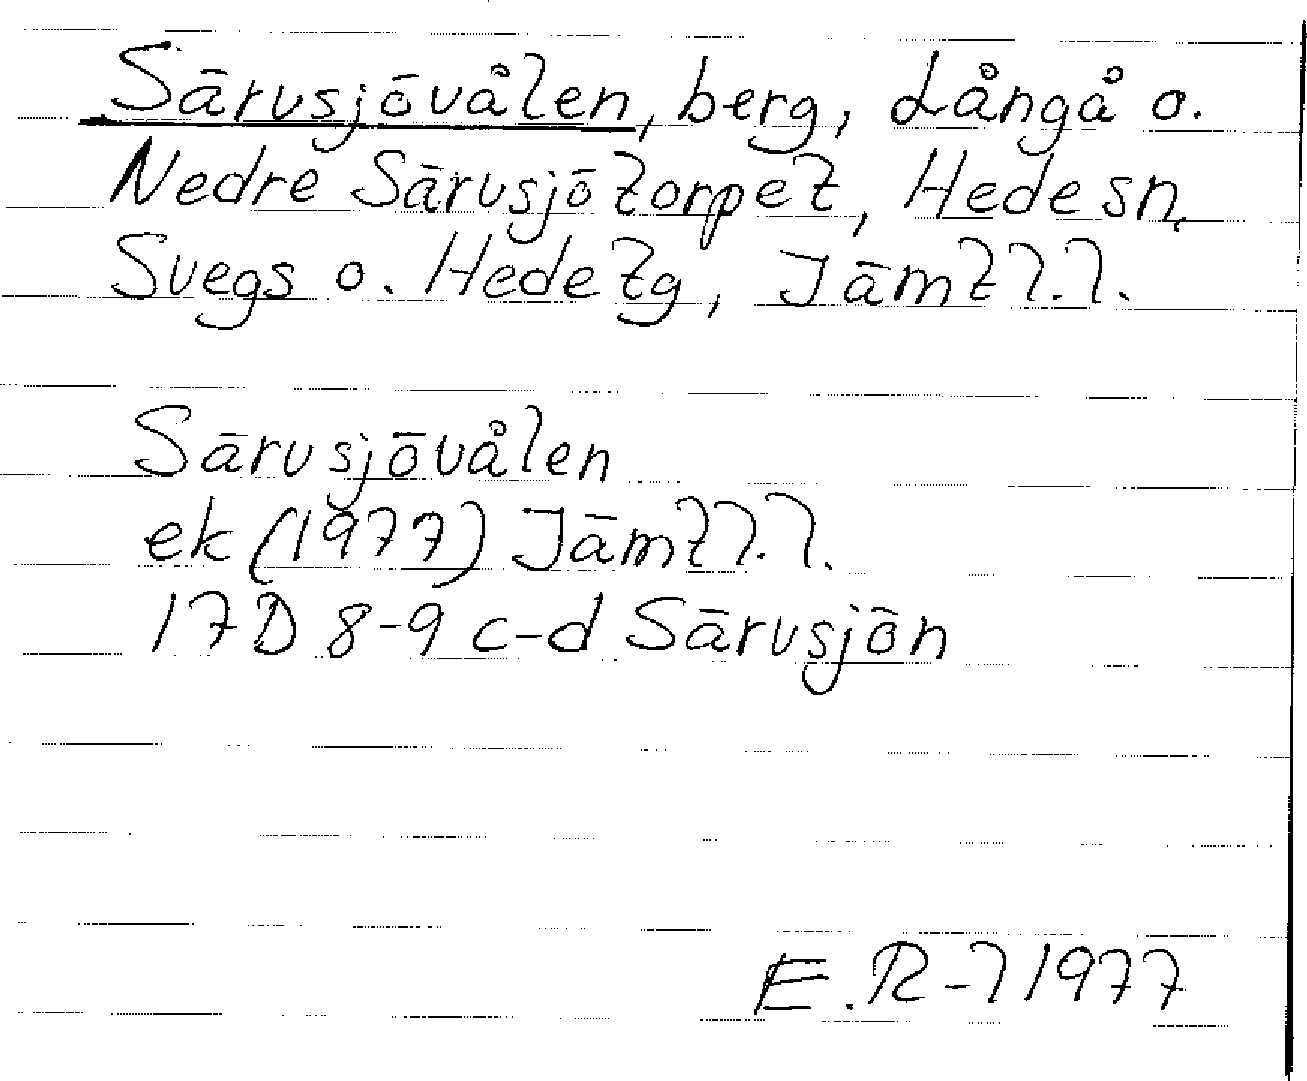 Särvsjövålen, berg, Långå o.
Nedre Särvsjötorpet, Hede sn,
Svegs o. Hede tg, Jämtl.l.
Särvsjövålen
ek (1977) Jämtl.l.
17D 8-9 c-d Särvsjön
E.R-l 1977